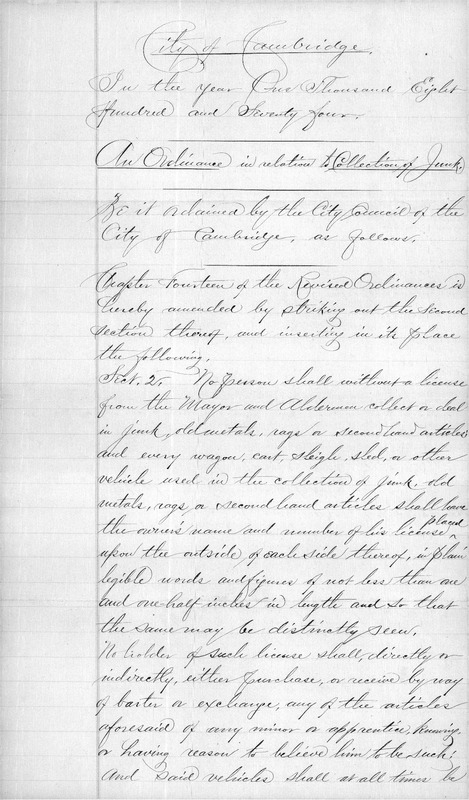 City of Cambridge.
In the year One Thousand Eight
Hundred and Seventy four.
An Ordinance in relation to Collection of Junk.
Be it ordained by the City Council of the
City of Cambridge, as follows.
Chapter Fourteen of the Revised Ordinances is
hereby amended by striking out the second
section thereof, and inserting in its place
the following.
Sect. 2. No person shall without a license
from the Mayor and Aldermen collect or deal
in junk, old metals, rags or second hand articles
and every wagon, cart, sleigh, sled, or other
vehicle used in the collection of junk, old
metals, rags, or second hand articles shall have
the owner's name and number of his license placed
upon the outside of each side thereof, in plain
legible words and figures of not less than one
and one-half inches in length and so that
the same may be distinctly seen.
No holder of such license shall, directly or
indirectly, either purchase, or receive by way
of barter or exchange, any of the articles
aforesaid of any minor or apprentice, knowing
or having reason to believe him to be such;
And said vehicles shall at all times be